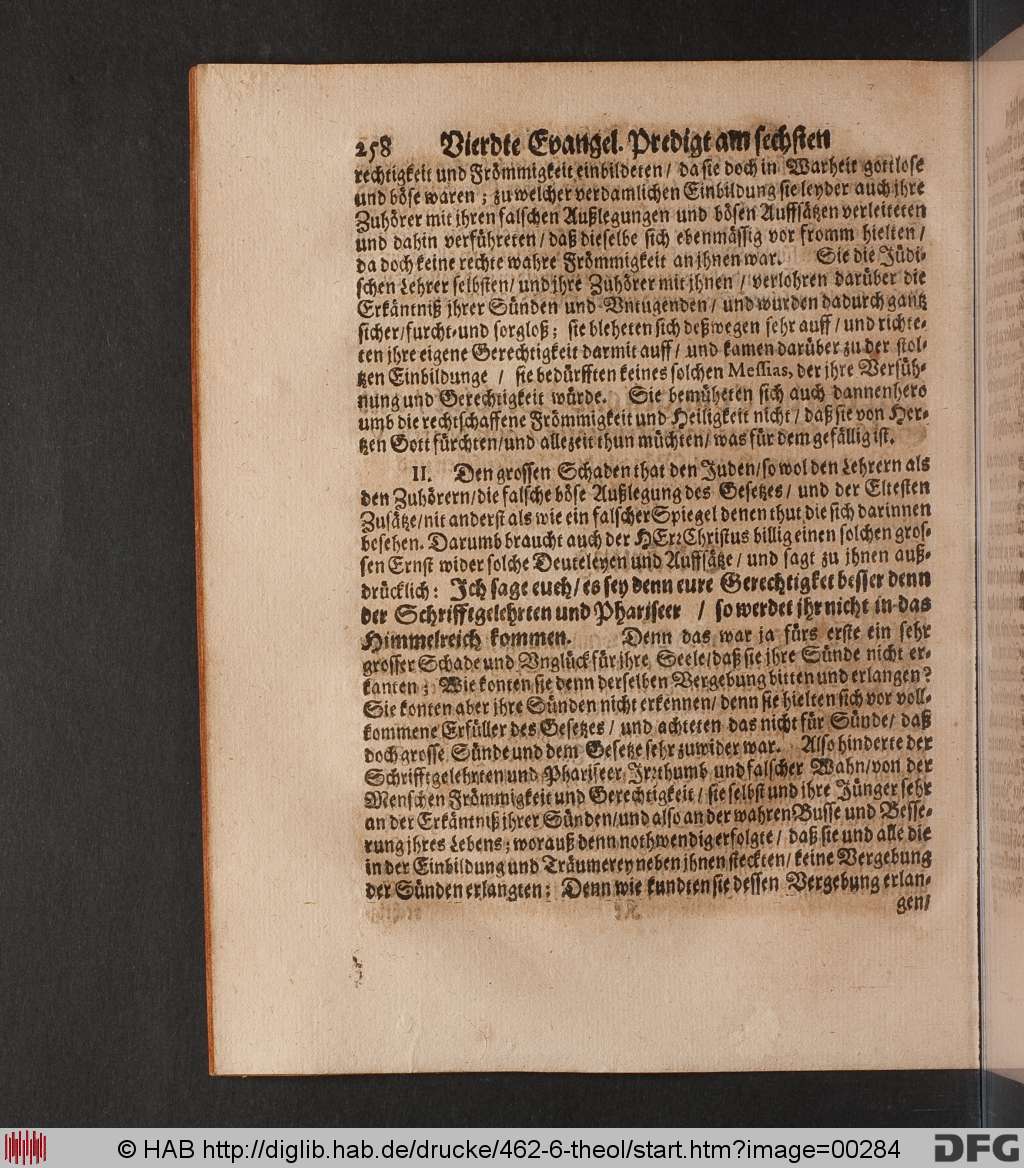 258 Vierdte Evangel. Predigt am sechsten
rechtigkeit und Frömmigkeit einbildeten / da sie doch in Warheit gottlose
und böse waren ; zu welcher verdamlichen Einbildung sie leyder auch jhre
Zuhörer mit jhren falschen Außlegungen und bösen Auffsätzen verleiteten
und dahin verführeten / daß dieselbe sich ebenmässig vor fromm hielten /
da doch keine rechte wahre Frömmigkeit an jhnen war. Sie die Jüdi-
schen Lehrer selbsten / und jhre Zuhörer mit jhnen / verlohren darüber die
Erkäntniß jhrer Sünden und Vntugenden / und wurden dadurch gantz
sicher / furcht- und sorgloß ; sie bleheten sich deßwegen sehr auff / und richte-
ten jhre eigene Gerechtigkeit darmit auff / und kamen darüber zu der stol-
tzen Einbildunge / sie bedürfften keines solchen Messias, der jhre Versüh-
nung und Gerechtigkeit würde. Sie bemüheten sich auch dannenhero
umb die rechtschaffene Frömmigkeit und Heiligkeit nicht / daß sie von Her-
tzen Gott fürchten / und allezeit thun müchten / was für dem gefällig ist.
II. Den grossen Schaden that den Juden / so wol den Lehrern als
den Zuhörern / die falsche böse Außlegung des Gesetzes / und der Eltesten
Zusätze / nit anderst als wie ein falscher Spiegel denen thut die sich darinnen
besehen. Darumb braucht auch der HErr Christus billig einen solchen gros-
sen Ernst wider solche Deuteleyen und Auffsätze / und sagt zu jhnen auß-
drücklich : Ich sage euch / es sey denn eure Gerechtigket besser denn
der Schrifftgelehrten und Phariseer / so werdet jhr nicht in das
Himmelreich kommen. Denn das war ja fürs erste ein sehr
grosser Schade und Vnglück für jhre Seele / daß sie jhre Sünde nicht er-
kanten ; Wie konten sie denn derselben Vergebung bitten und erlangen ?
Sie konten aber jhre Sünden nicht erkennen / denn sie hielten sich vor voll-
kommene Erfüller des Gesetzes / und achteten das nicht für Sünde / daß
doch grosse Sünde und dem Gesetze sehr zuwider war. Also hinderte der
Schrifftgelehrten und Phariseer Irrthumb und falscher Wahn / von der
Menschen Frömmigkeit und Gerechtigkeit / sie selbst und ihre Jünger sehr
an der Erkäntniß jhrer Sünden / und also an der wahren Busse und Besse-
rung jhres Lebens ; worauß denn nothwendig erfolgte / daß sie und alle die
in der Einbildung und Träumerey neben jhnen steckten / keine Vergebung
der Sünden erlangten ; Denn wie kundten sie dessen Vergebung erlan-
gen /
© HAB http://diglib.hab.de/drucke/462-6-theol/start.htm?image=00284
DFG